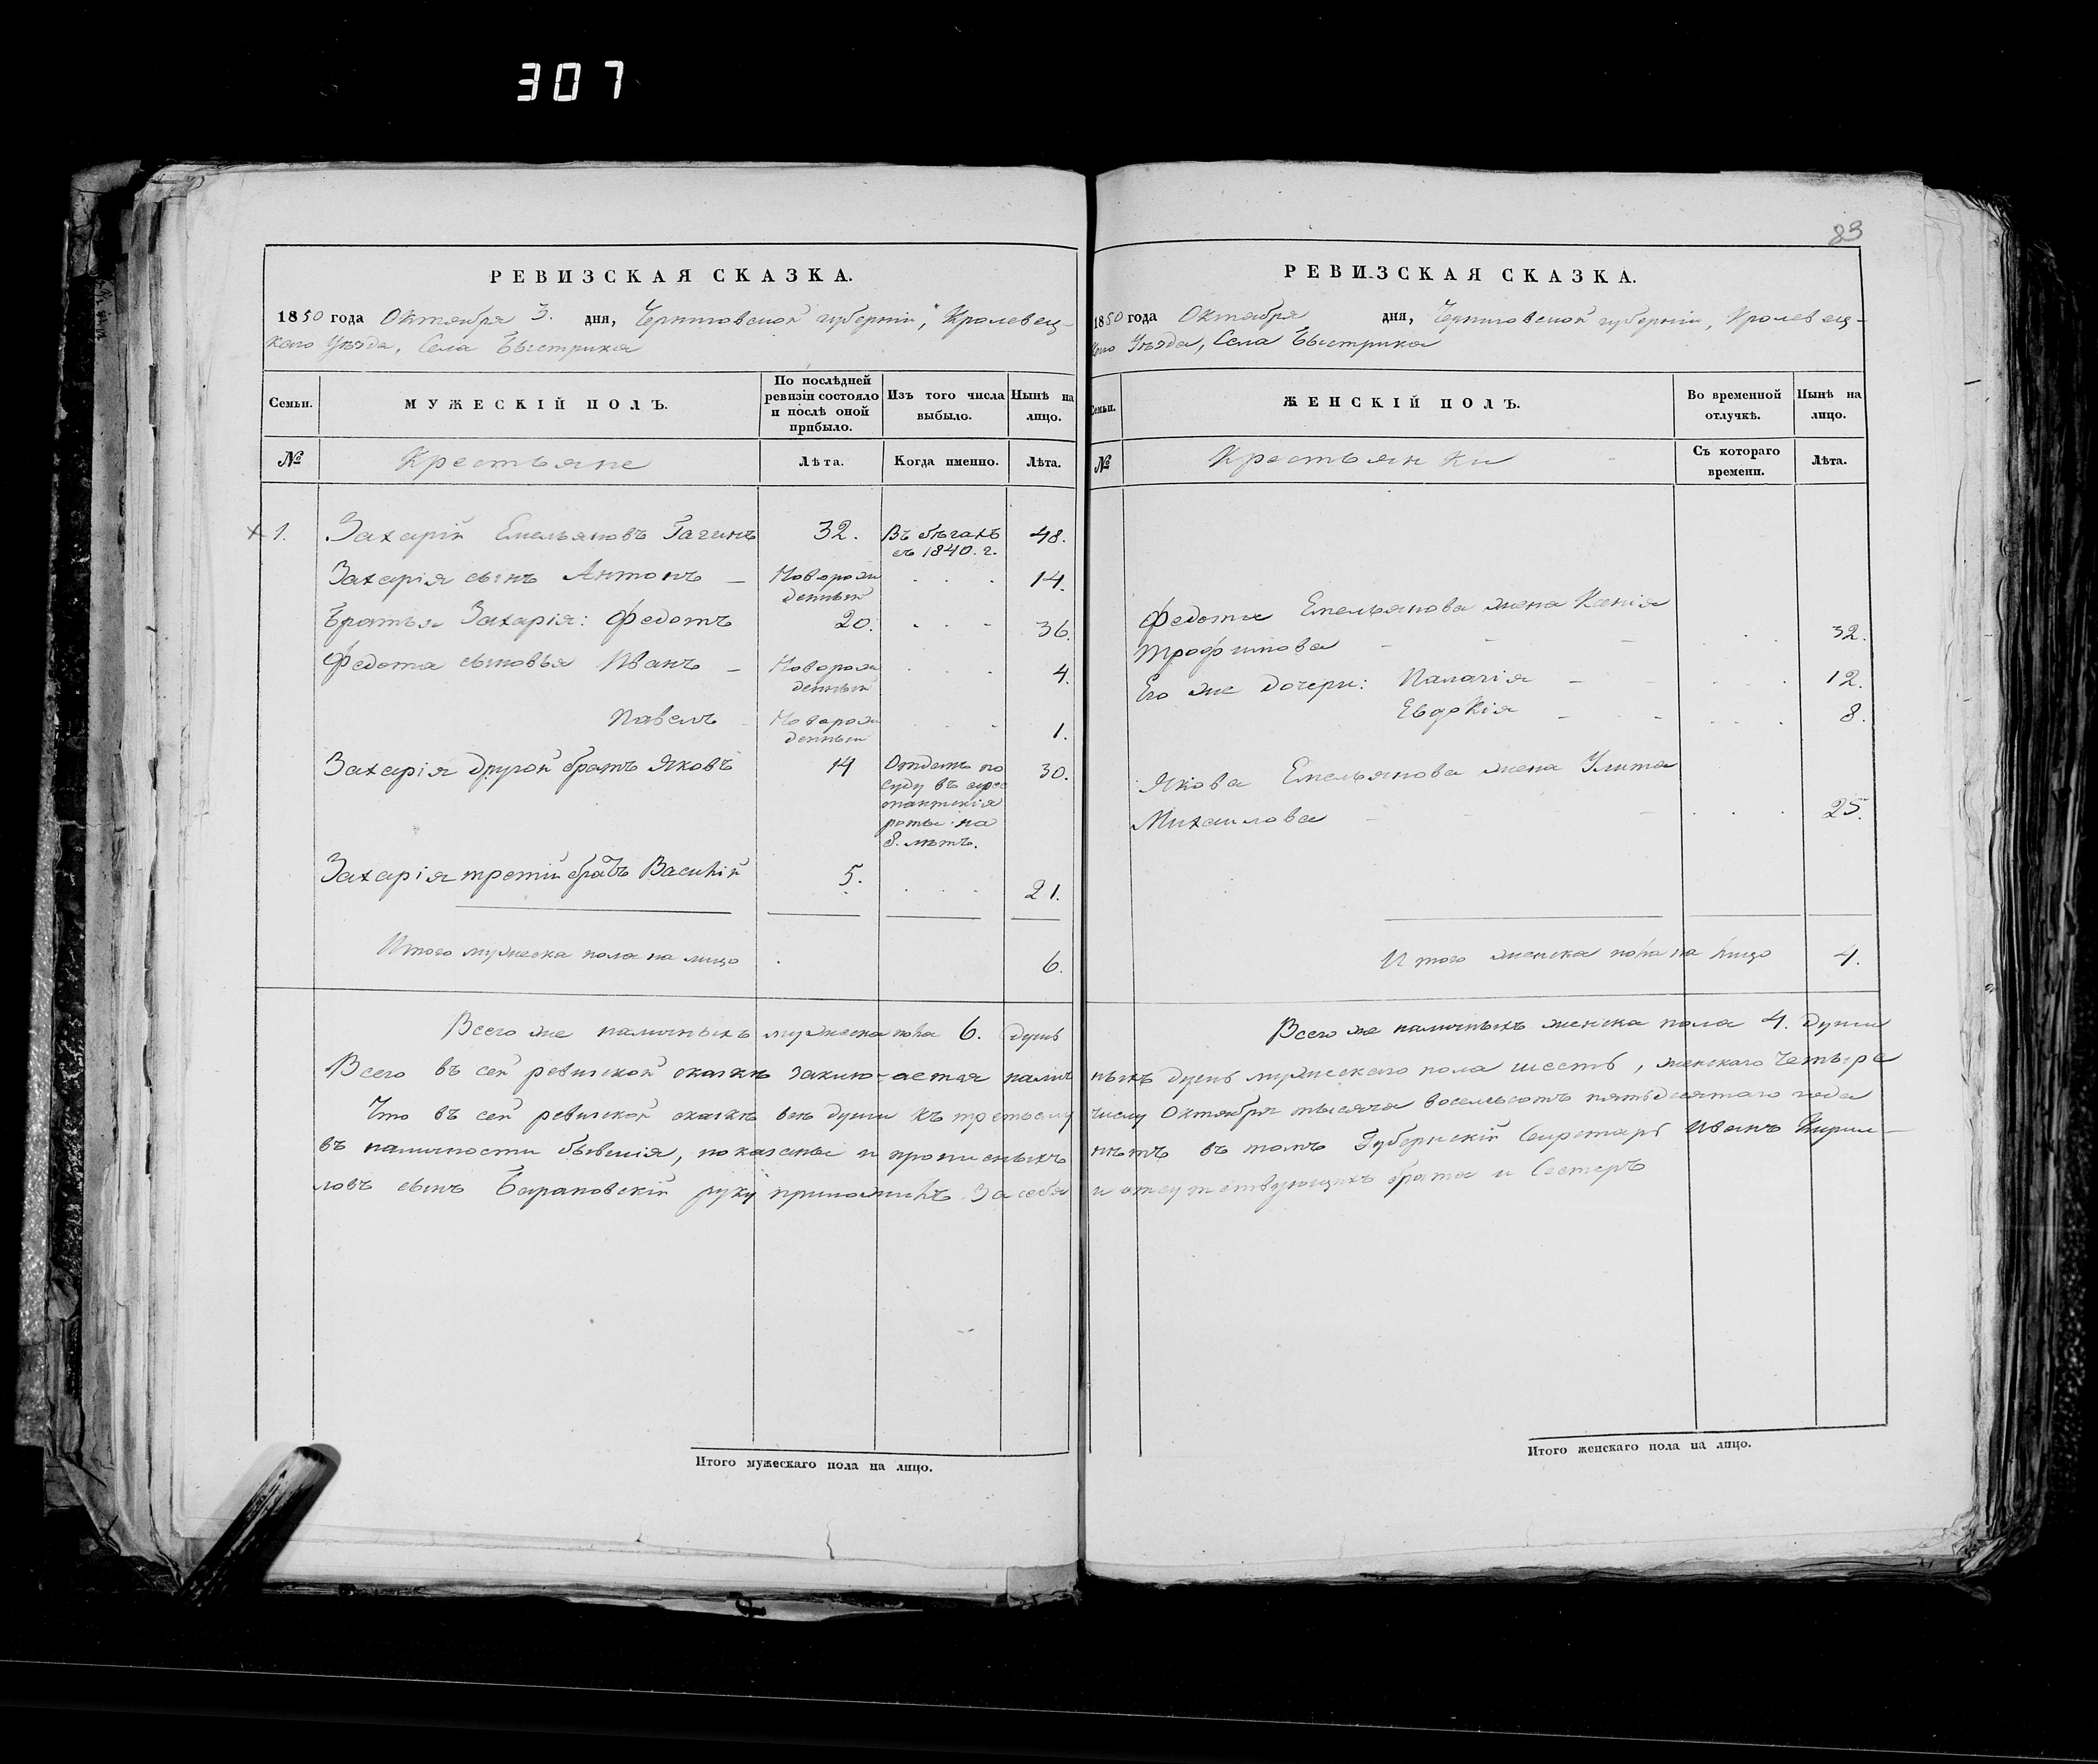 307
83
РЕВИЗСКАЯ СКАЗКА.
1850 года Октября 3. дня, Черниговской губерніи, Кролевец-
каго Уѣзда, Села Быстрика
Семьи.
МУЖЕСКІЙ ПОЛЪ.
По послѣдней
ревизіи состояло
и послѣ оной
прибыло.
Изъ того числа
выбыло.
Нынѣ на
лицо.
№
Крестьяне
Лѣта.
Когда именно.
Лѣта.
1. Захарій Емельяновъ Гагинъ 32. Въ бѣгахъ 48.
съ 1840. г.
Захарія сынъ Антонъ — Новорож 14.
денный
Братья Захарія: Федотъ 20. 36.
Федота сыновья Иванъ — Новорож 4.
денный
Павелъ Новорож 1.
денный
Захарія другой братъ Яковъ 14 Отданъ по 30.
суду въ арес
тантскія
роты на
8. лѣтъ.
Захарія третій братъ Василій 5. 21.
Итого мужеска пола на лицо 6.
Всего же наличныхъ мужеска пола 6. душъ
РЕВИЗСКАЯ СКАЗКА.
1850 года Октября дня, Черниговской губерніи, Кролевец-
каго Уѣзда, Села Быстрика
Семьи.
ЖЕНСКІЙ ПОЛЪ.
Во временной
отлучкѣ.
Нынѣ на
лицо.
№
Крестьянки
Съ котораго
времени.
Лѣта.
Федота Емельянова жена Ксенія
Трофимова 32.
Его же дочери: Палагія 12.
Евдокія 8.
Якова Емельянова жена Улита
Михайлова 25.
Итого женска пола на лицо 4.
Всего же наличныхъ женска пола 4. души
Всего въ сей ревизской сказкѣ заключается налич ныхъ душъ мужескаго пола шесть, женскаго четыре
Что въ сей ревизской сказкѣ всѣ души къ третьему числу Октября тысяча восемьсотъ пятьдесятаго года
въ наличности бывшія, показаны и прописныхъ нѣтъ въ томъ Губернскій Секретарь Иванъ Кирил-
ловъ сынъ Барановскій руку приложилъ за себя и отсутствующихъ брата и Сестеръ
Итого мужескаго пола на лицо.
Итого женскаго пола на лицо.